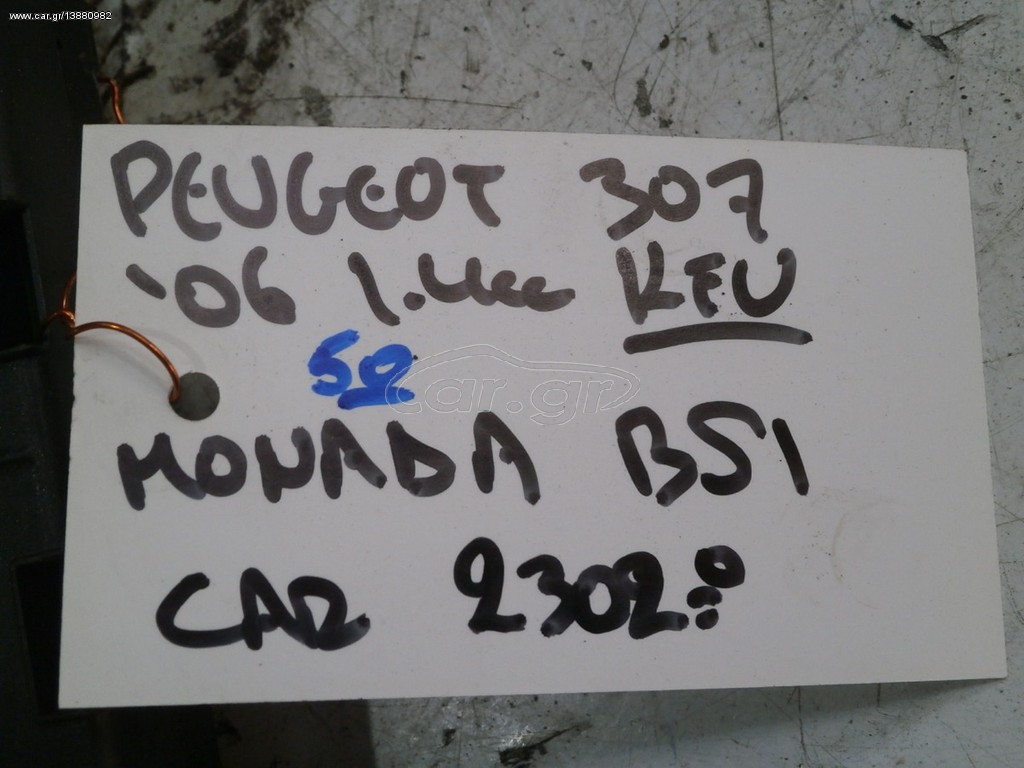 www.car.gr/13880982
PEUGEOT 307
'06 1.4cc KFU
50
car.gr
MONADA BSI
CAR 2302